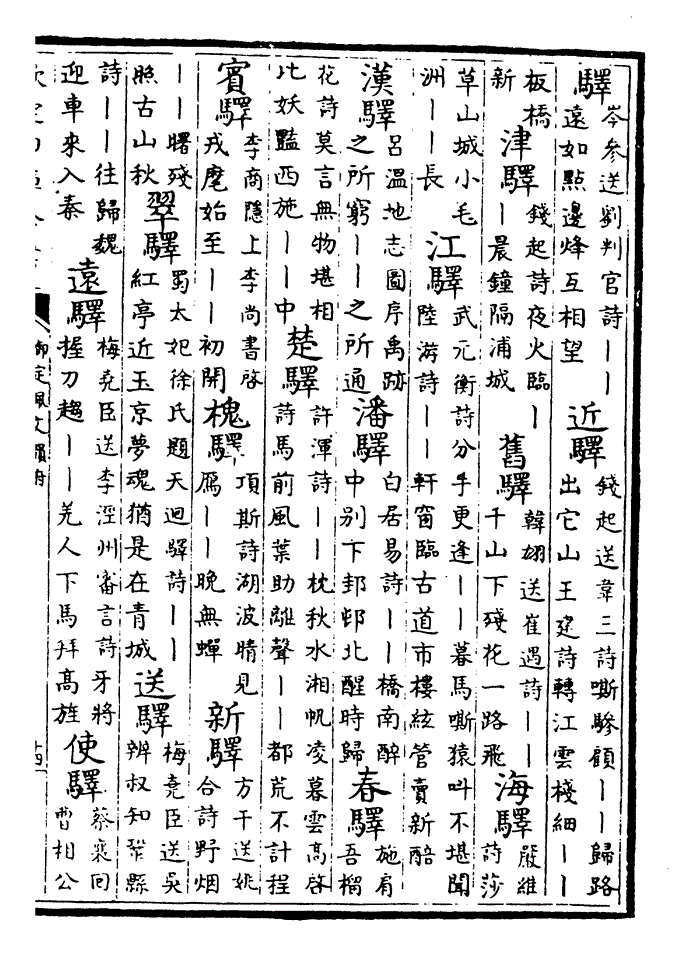 驛
岑參送劉判官詩丨丨
遠如點邊烽互相望
近驛
錢起送韋三詩嘶驂顧丨丨歸路
出它山王建詩轉江雲棧細丨丨
板橋
新
津驛
錢起詩夜火臨丨
丨晨鐘隔浦城
舊驛
韓翃送崔過詩丨丨
千山下殘花一路飛
海驛
嚴維
詩莎
草山城小毛
洲丨丨長
江驛
武元衡詩分手更逢丨丨暮馬嘶猿叫不堪聞
陸游詩丨丨軒窗臨古道市樓絃管賣新醅
漢驛
呂溫地志圖序禹跡
之所窮丨丨之所通
潘驛
白居易詩丨丨橋南醉
中别下邽邨北醒時歸
春驛
施肩
吾榴
花詩莫言無物堪相
比妖豔西施丨丨中
楚驛
許渾詩丨丨枕秋水湘帆凌暮雲高啓
詩馬前風葉助離聲丨丨都荒不計程
賓驛
李商隱上李尚書啓
戎麾始至丨丨初開
槐驛
項斯詩湖波晴見
鴈丨丨晚無蟬
新驛
方干送姚
合詩野烟
丨丨曙殘
照古山秋
翠驛
蜀太妃徐氏題天迴驛詩丨丨
紅亭近玉京夢魂猶是在青城
送驛
梅堯臣送吳
辨叔知鞏縣
詩丨丨往歸魏
迎車來入秦
遠驛
梅堯臣送李涇州審言詩牙將
握刀趨丨丨羌人下馬拜高旌
使驛
蔡襄回
曹相公
御定佩文韻府
十四